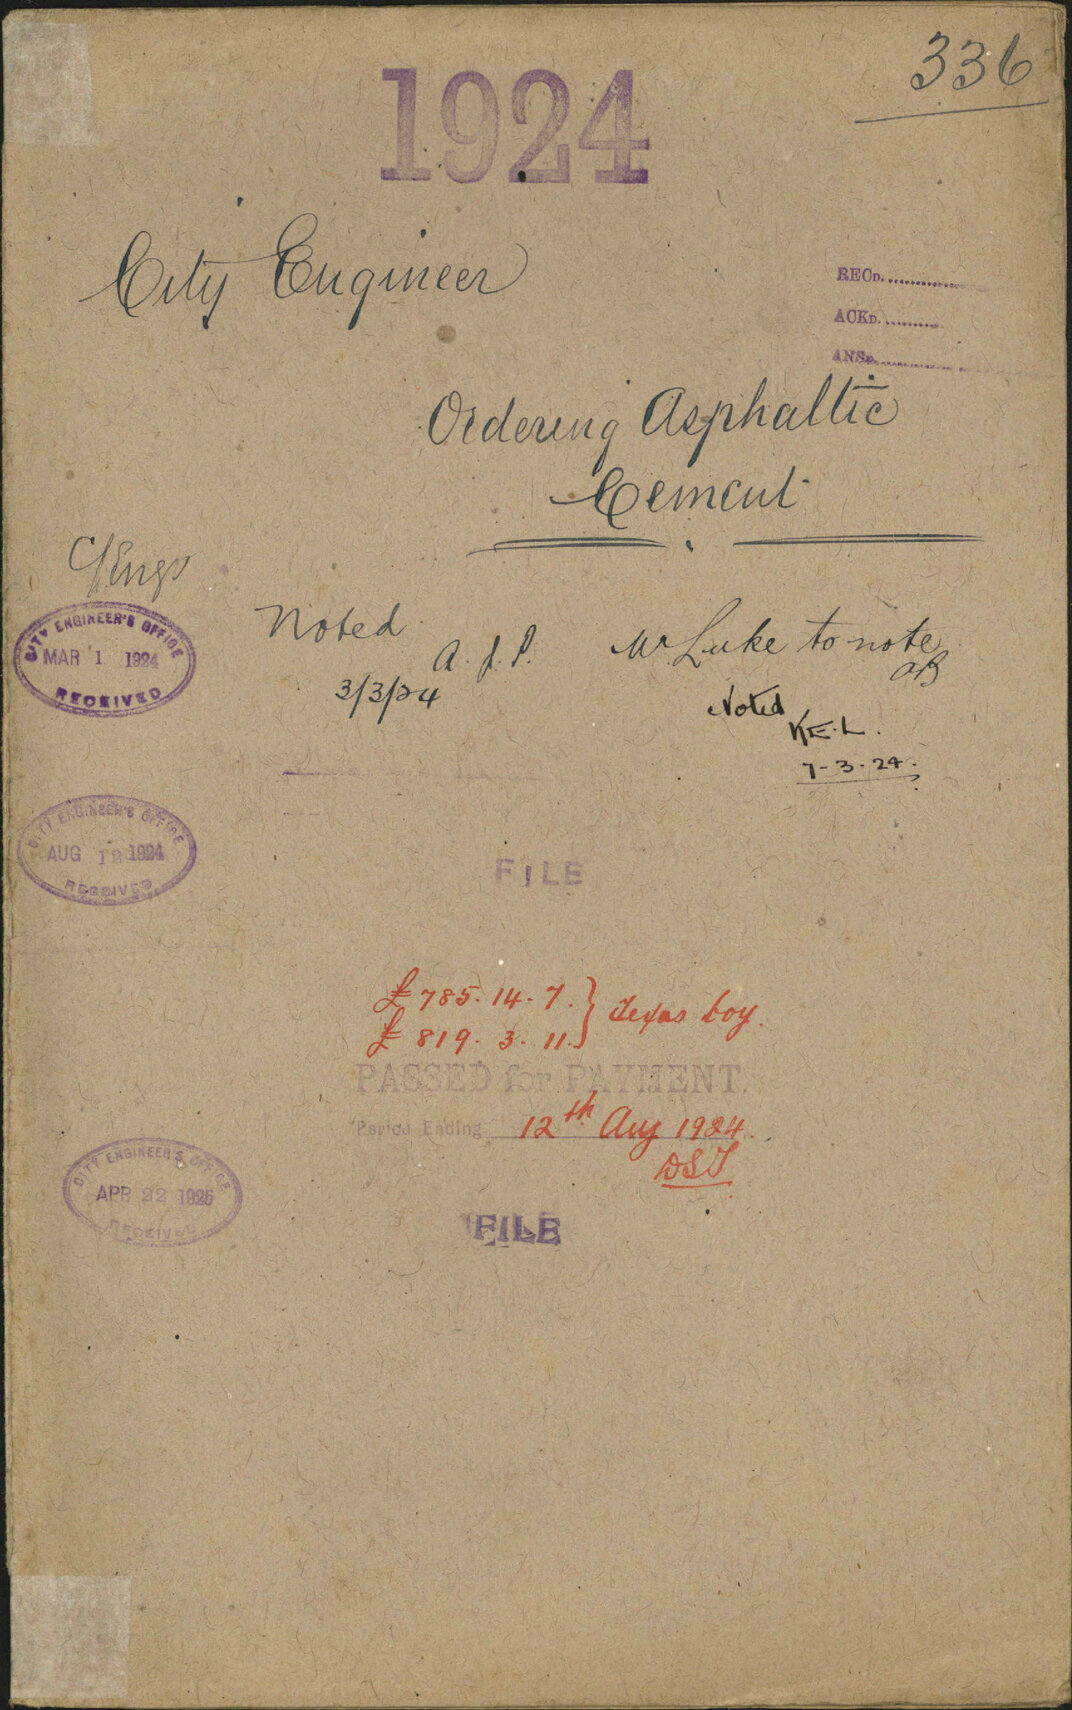 336
1924
City Engineer
RECD.
ACKD.
ANSD.
Ordering Asphaltic
Cement
C/Engr
CITY ENGINEER'S OFFICE
MAR 1 1924
RECEIVED
Noted
A. J. P.
3/3/24
Mr Luke to note
Noted
K.E.L.
7-3-24.
CITY ENGINEER'S OFFICE
AUG 12 1924
RECEIVED
FILE
£785. 14. 7.
£819. 3. 11.
Texas Coy.
PASSED for PAYMENT.
Period Ending 12th Aug 1924.
CITY ENGINEER'S OFFICE
APR 22 1925
RECEIVED
FILE